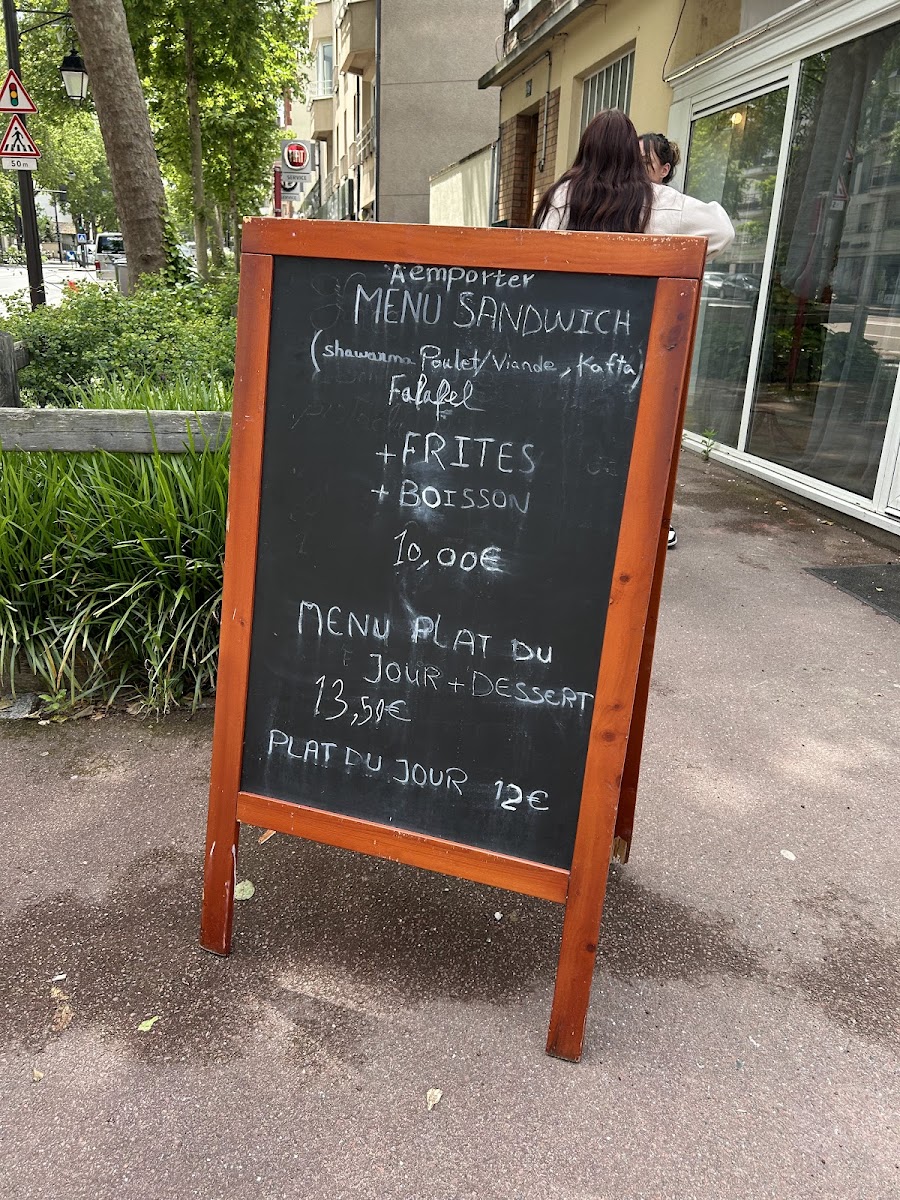 FIAT
SERVICE
50m
A emporter
MENU SANDWICH
(shawarma Poulet/Viande, Kafta)
Falafel
+ FRITES
+ BOISSON
10,00€
MENU PLAT DU
JOUR + DESSERT
13,50€
PLAT DU JOUR 12€